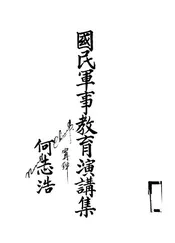 國民軍事教育演講集
何志浩